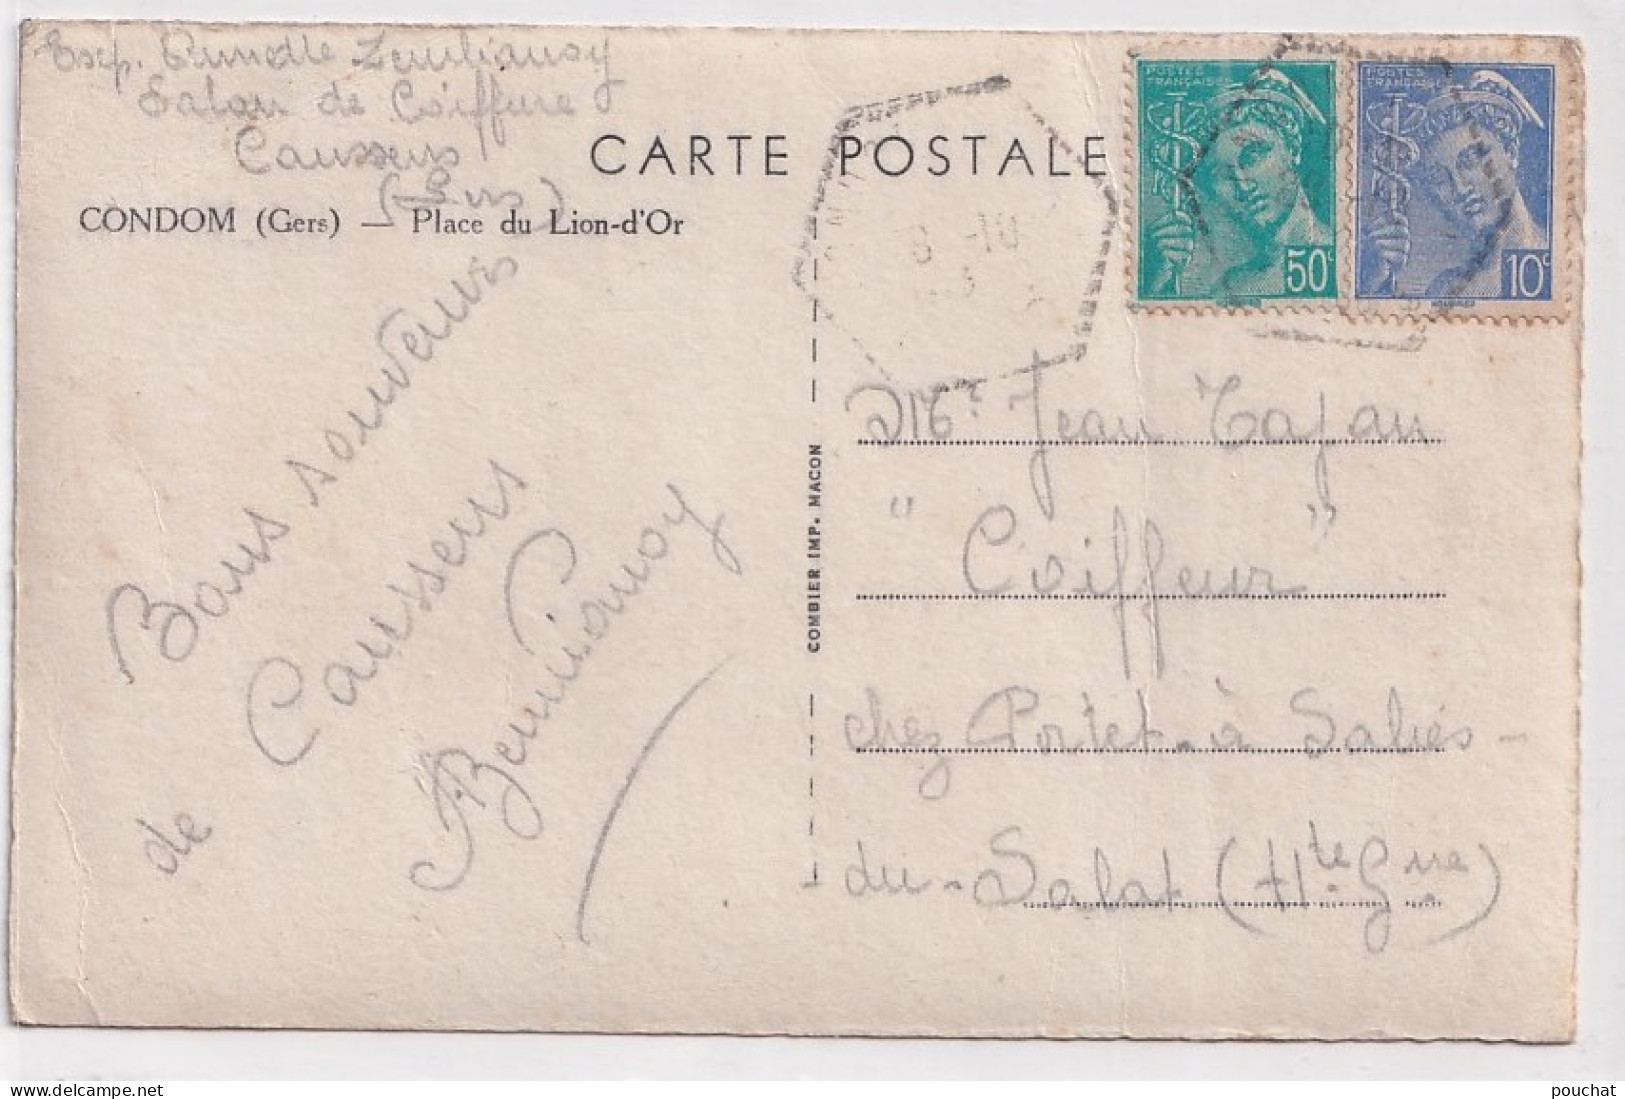 Exp.
Salon de Coiffure
Caussens
(Gers)
CARTE POSTALE
CONDOM (Gers) — Place du Lion-d'Or
POSTES
FRANÇAISES
50c
POSTES
FRANÇAISES
10c
8 -10
Bons souvenirs
de Caussens
COMBIER IMP. MACON
Jean Tajan
"Coiffeur"
chez Portet - à Salies-
du-Salat (Hte Gne)
pouchat